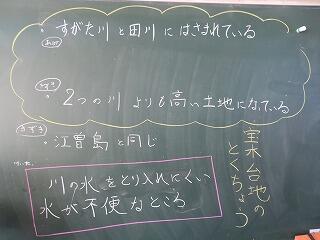 宝木台地の
とくちょう
・すがた川と田川にはさまれている
・2つの川よりも高い土地になっている
・江曽島と同じ
川の水をとり入れにくい
水が不便なところ